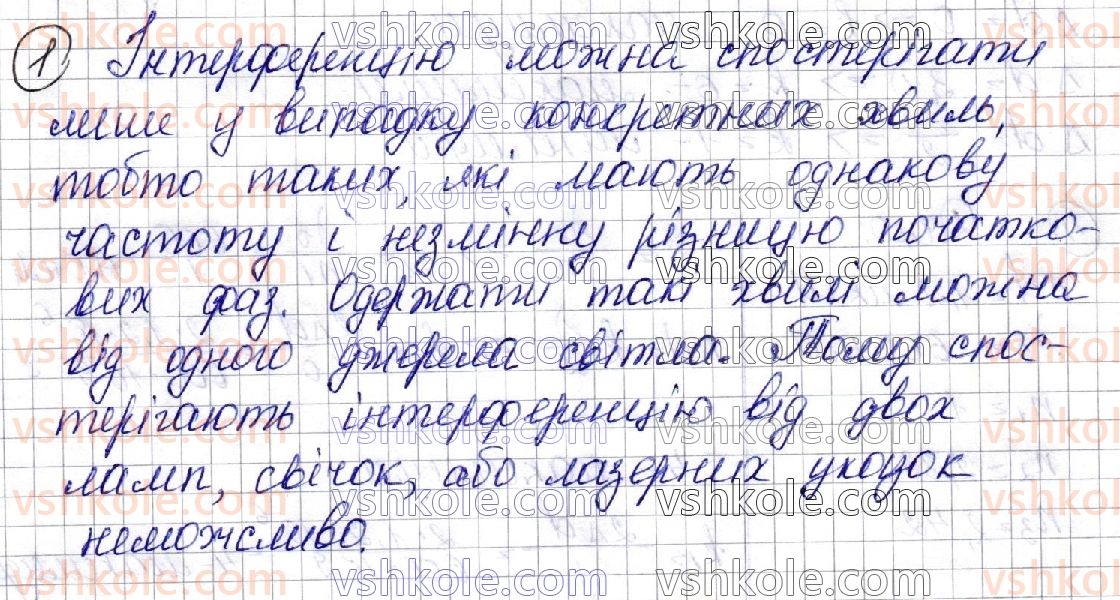 1 Інтерференцію можна спостерігати
лише у випадку конкретних хвиль,
тобто таких, які мають однакову
частоту і незмінну різницю початко-
вих фаз. Одержати такі хвилі можна
від одного джерела світла. Тому спос-
терігають інтерференцію від двох
ламп, свічок, або лазерних уколок
неможливо.
vshkole.com